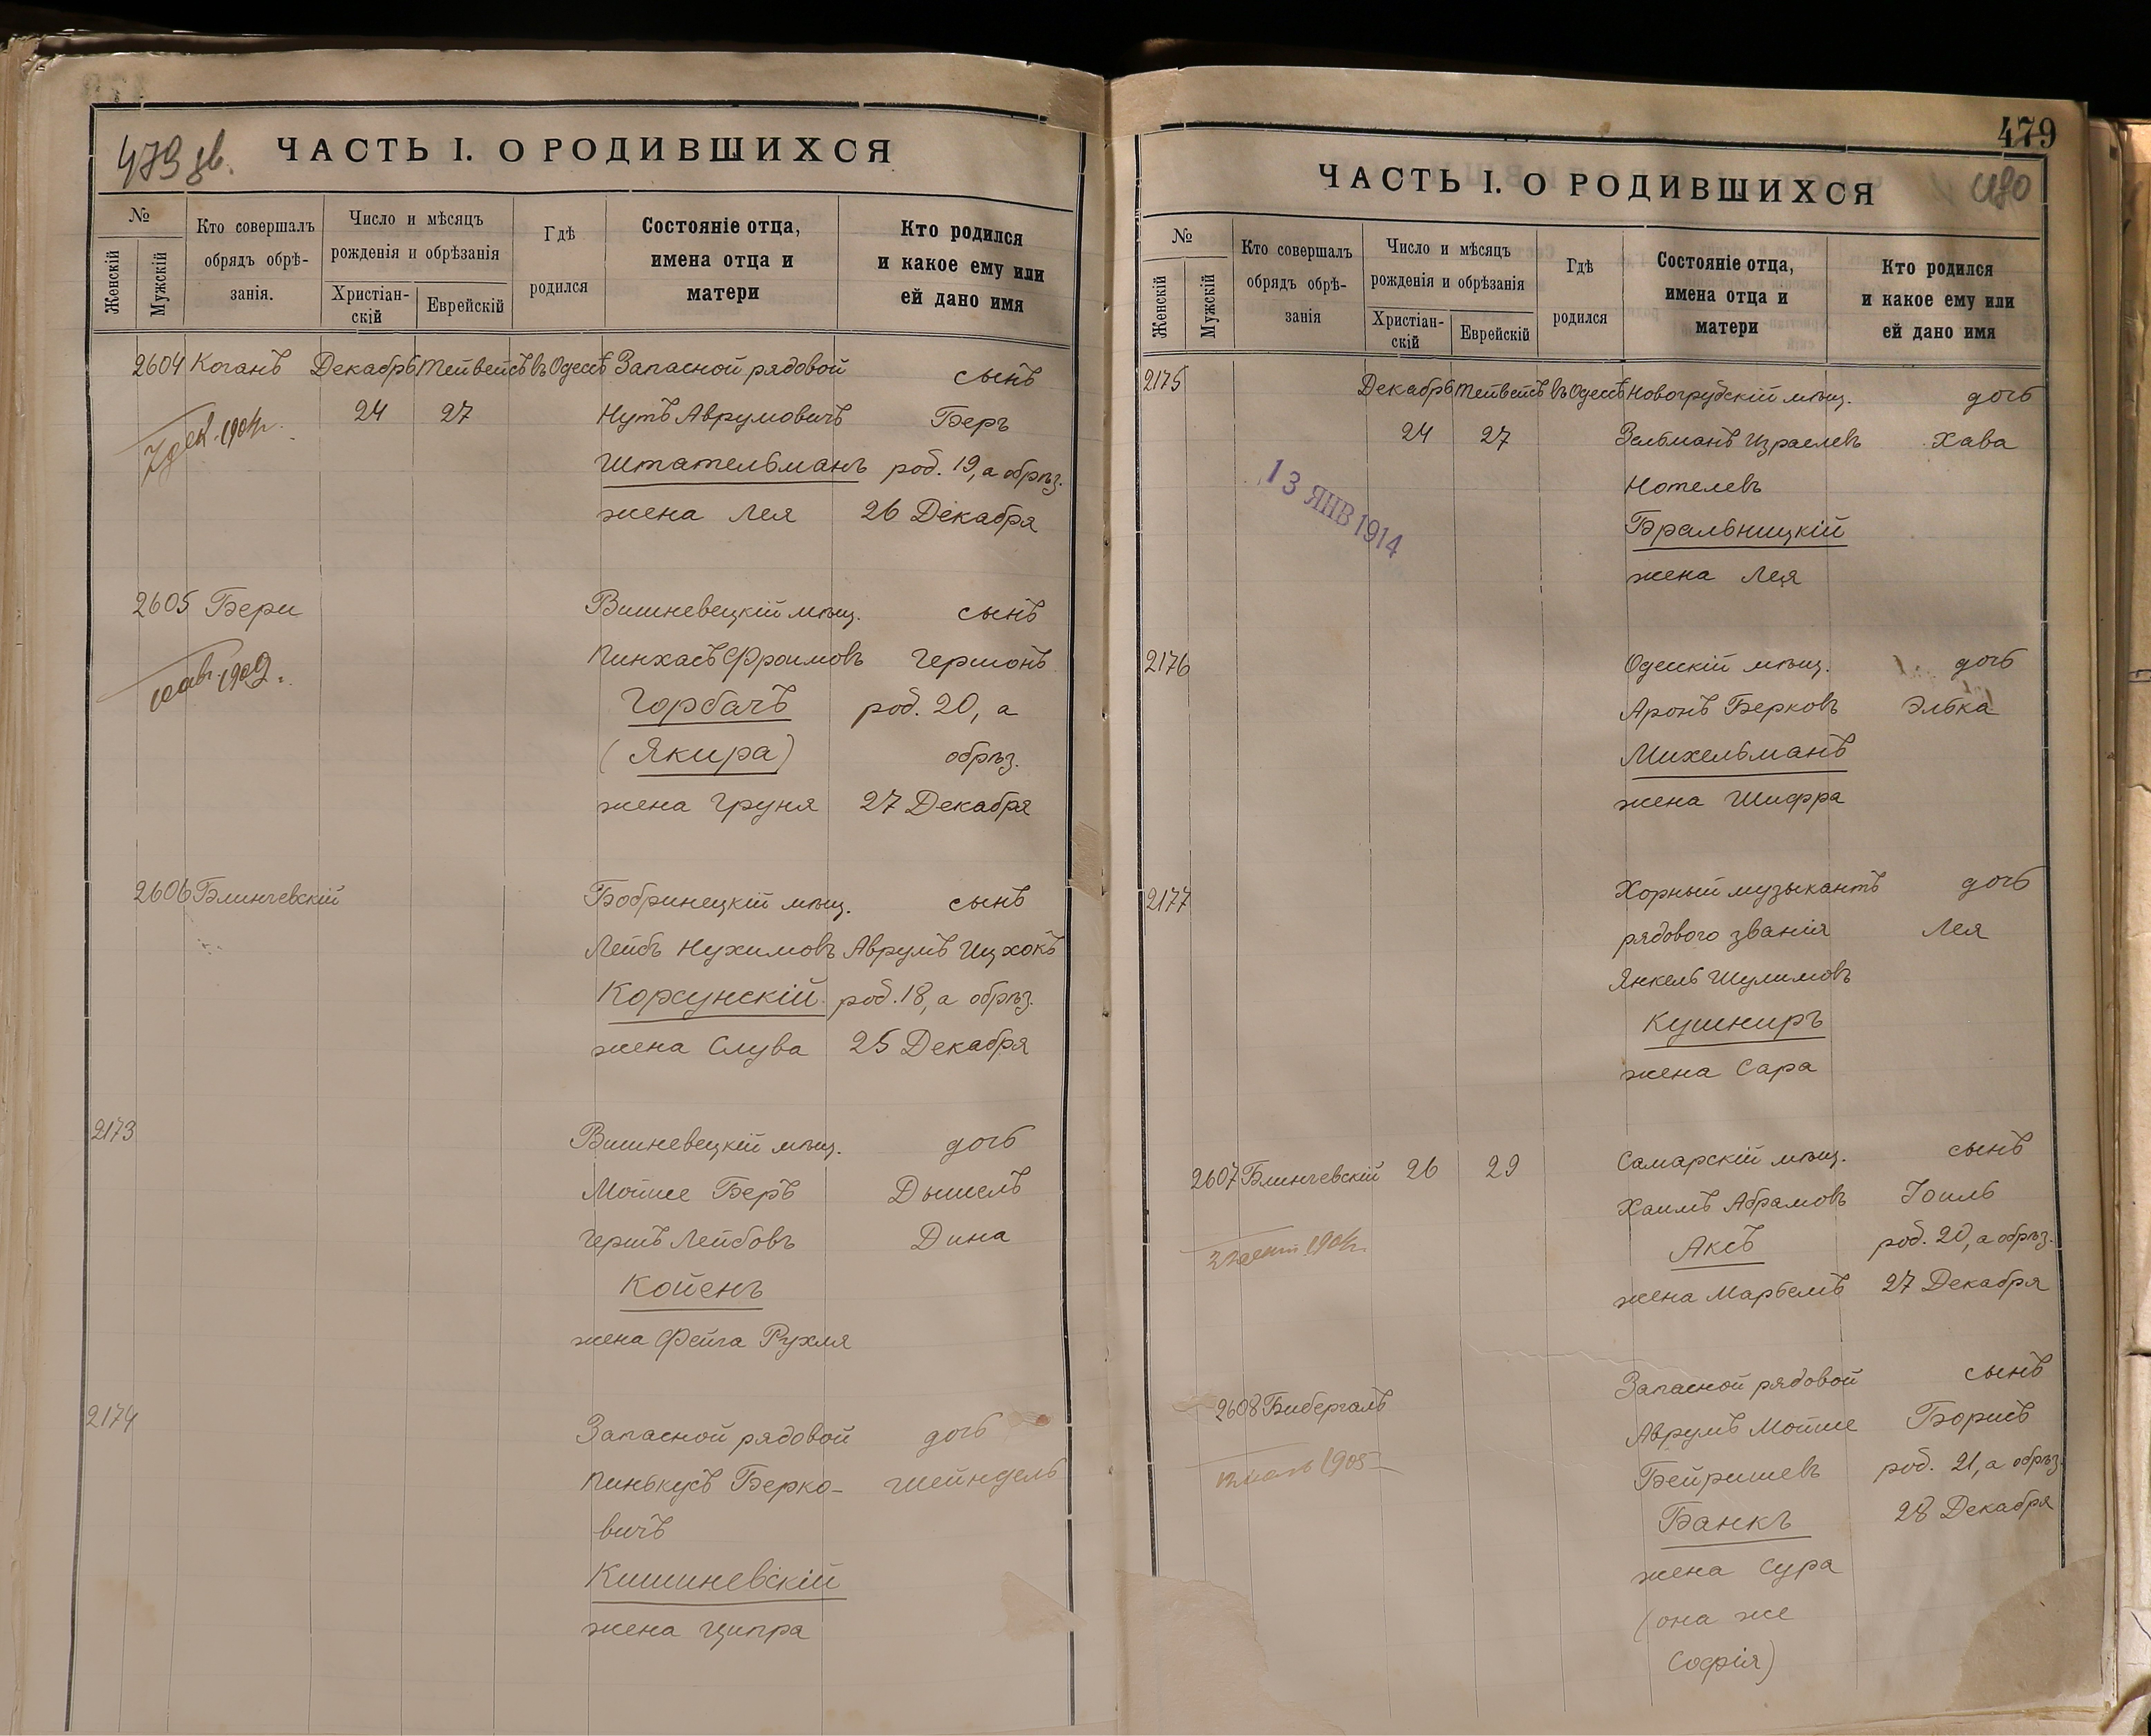 479 зв.
ЧАСТЬ I. О РОДИВШИХСЯ
№
Женскій
Мужскій
Кто совершалъ
обрядъ обрѣ-
занія.
Число и мѣсяцъ
рожденія и обрѣзанія
Христіан-
скій
Еврейскій
Гдѣ
родился
Состояніе отца,
имена отца и
матери
Кто родился
и какое ему или
ей дано имя
2604 Коганъ Декабрь Тейвейсъ въ Одессѣ Запасной рядовой сынъ
24 27 Нутъ Аврумовичъ Беръ
7 дек. 1904 г.
Штательманъ род. 19, а обрѣз.
жена Лея 26 Декабря
2605 Бери Вишневецкій мѣщ. сынъ
Пинхасъ Фроимовъ Гершонъ
1909.
Горбачъ род. 20, а
(Якира) обрѣз.
жена Груня 27 Декабря
2606 Блинчевскій Бобринецкій мѣщ. сынъ
Лейбъ Нухимовъ Аврумъ Ицхокъ
Корсунскій род. 18, а обрѣз.
жена Слува 25 Декабря
2173 Вишневецкій мѣщ. дочь
Мойше Беръ Дышель
Гершъ Лейбовъ Дина
Койенъ
жена Фейга Рухля
2174 Запасной рядовой дочь
Пинькусъ Берко- Шейндель
вичъ
Кишиневскій
жена Ципра
479
480
ЧАСТЬ I. О РОДИВШИХСЯ
№
Женскій
Мужскій
Кто совершалъ
обрядъ обрѣ-
занія
Число и мѣсяцъ
рожденія и обрѣзанія
Христіан-
скій
Еврейскій
Гдѣ
родился
Состояніе отца,
имена отца и
матери
Кто родился
и какое ему или
ей дано имя
2175 Декабрь Тейвейсъ въ Одессѣ Новогрудскій мѣщ. дочь
24 27 Зельманъ Израелевъ Хава
13 ЯНВ 1914
Нотелевъ
Бральницкій
жена Лея
2176 Одесскій мѣщ. дочь
Аронъ Берковъ Элька
Михельманъ
жена Шифра
2177 Хорный музыкантъ дочь
рядового званія Лея
Янкель Шулимовъ
Кушниръ
жена Сара
2607 Блинчевскій 26 29 Самарскій мѣщ. сынъ
Хаимъ Абрамовъ Іоиль
1904 г.
Аксъ род. 20, а обрѣз.
жена Марьемъ 27 Декабря
2608 Бибергалъ Запасной рядовой сынъ
Аврумъ Мойше Борисъ
1905
Бейришевъ род. 21, а обрѣз.
Банкъ 28 Декабря
жена Сура
(она же
Софія)